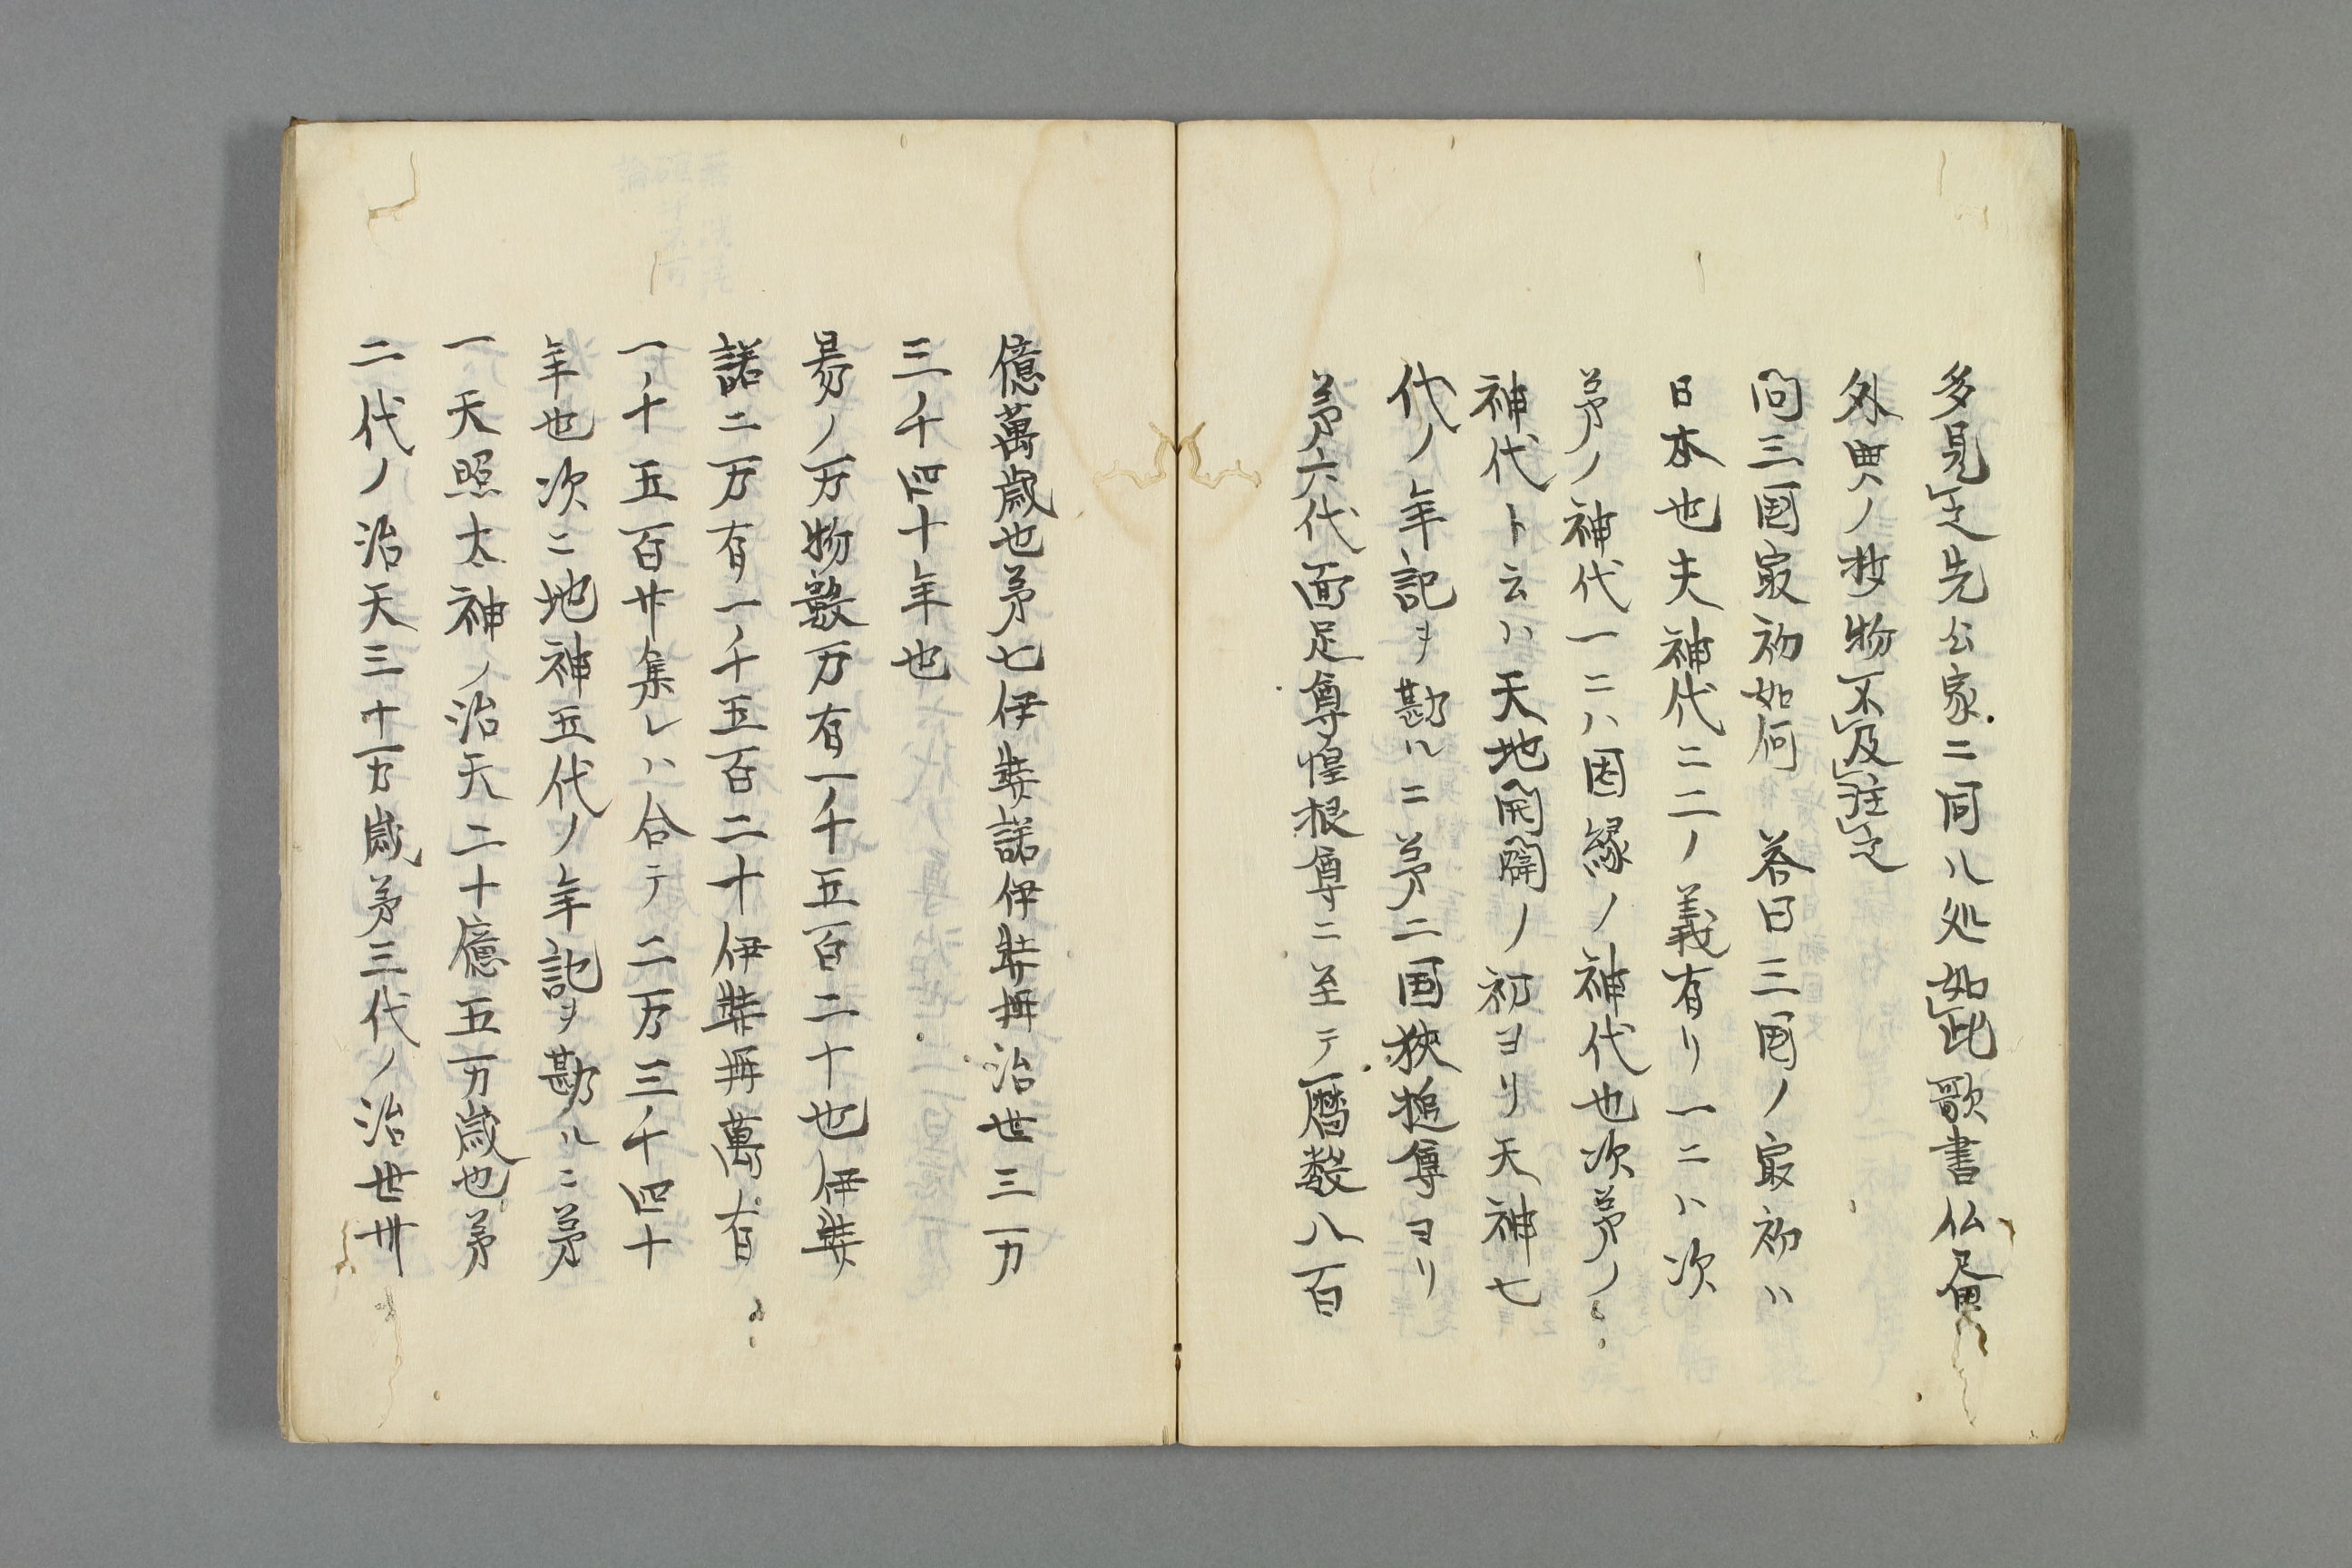 多見之先公家ニ同ル処如此歌書仏書
外典ノ抄物不及注之
問三国最初如何　答曰三国ノ最初ハ
日本也夫神代ニ二ノ義有リ一ニハ次
第ノ神代一ニハ因縁ノ神代也次第ノ
神代ト云ハ天地開闢ノ初ヨリ天神七
代ノ年記ヲ勘ルニ第二国狭槌尊ヨリ
第六代面足尊惶根尊ニ至テ暦数八百
億萬歳也第七伊弉諾伊弉冊治世三万
三千四十年也
易ノ万物数万有一千五百二十也伊弉
諾二万有一千五百二十伊弉冊萬有
一千五百廿集レハ合テ二万三千四十
年也次ニ地神五代ノ年記ヲ勘ルニ第
一天照太神ノ治天二十億五万歳也第
二代ノ治天三十万歳第三代ノ治世卅